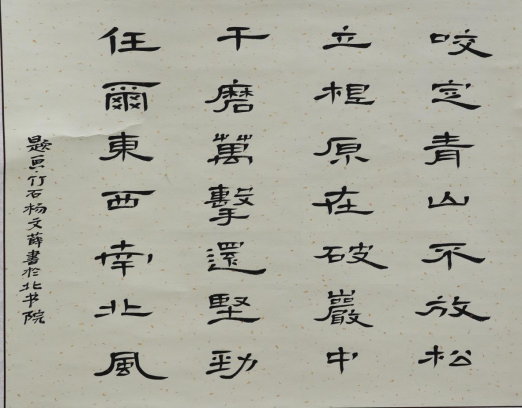 咬定青山不放松
立根原在破巖中
千磨萬擊還堅勁
任爾東西南北風
題畫·竹石杨文薛書於北书院